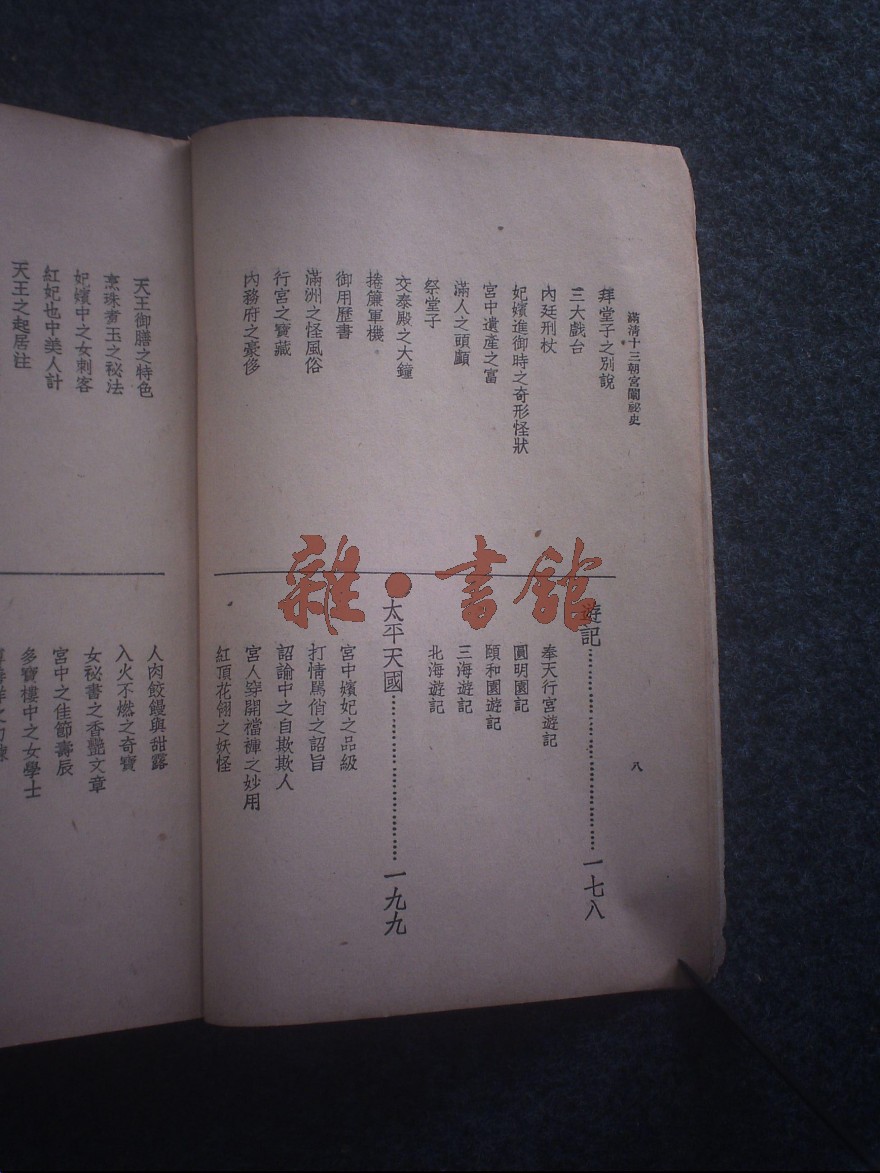 滿清十三朝宮闈祕史
八
拜堂子之別說
三大戲台
內廷刑杖
妃嬪進御時之奇形怪狀
宮中遺產之富
滿人之頭顱
祭堂子
交泰殿之大鐘
捲簾軍機
御用歷書
滿洲之怪風俗
行宮之寶藏
內務府之豪侈
遊記……………………一七八
奉天行宮遊記
圓明園記
頤和園遊記
三海遊記
北海遊記
太平天國……………………一九九
宮中嬪妃之品級
打情罵俏之詔旨
詔諭中之自欺欺人
宮人穿開襠褲之妙用
紅頂花翎之妖怪
天王御膳之特色
烹珠煮玉之秘法
妃嬪中之女刺客
紅妃也中美人計
天王之起居注
人肉餃饅與甜露
入火不燃之奇寶
女秘書之香艷文章
宮中之佳節壽辰
多寶樓中之女學士
雜·書館